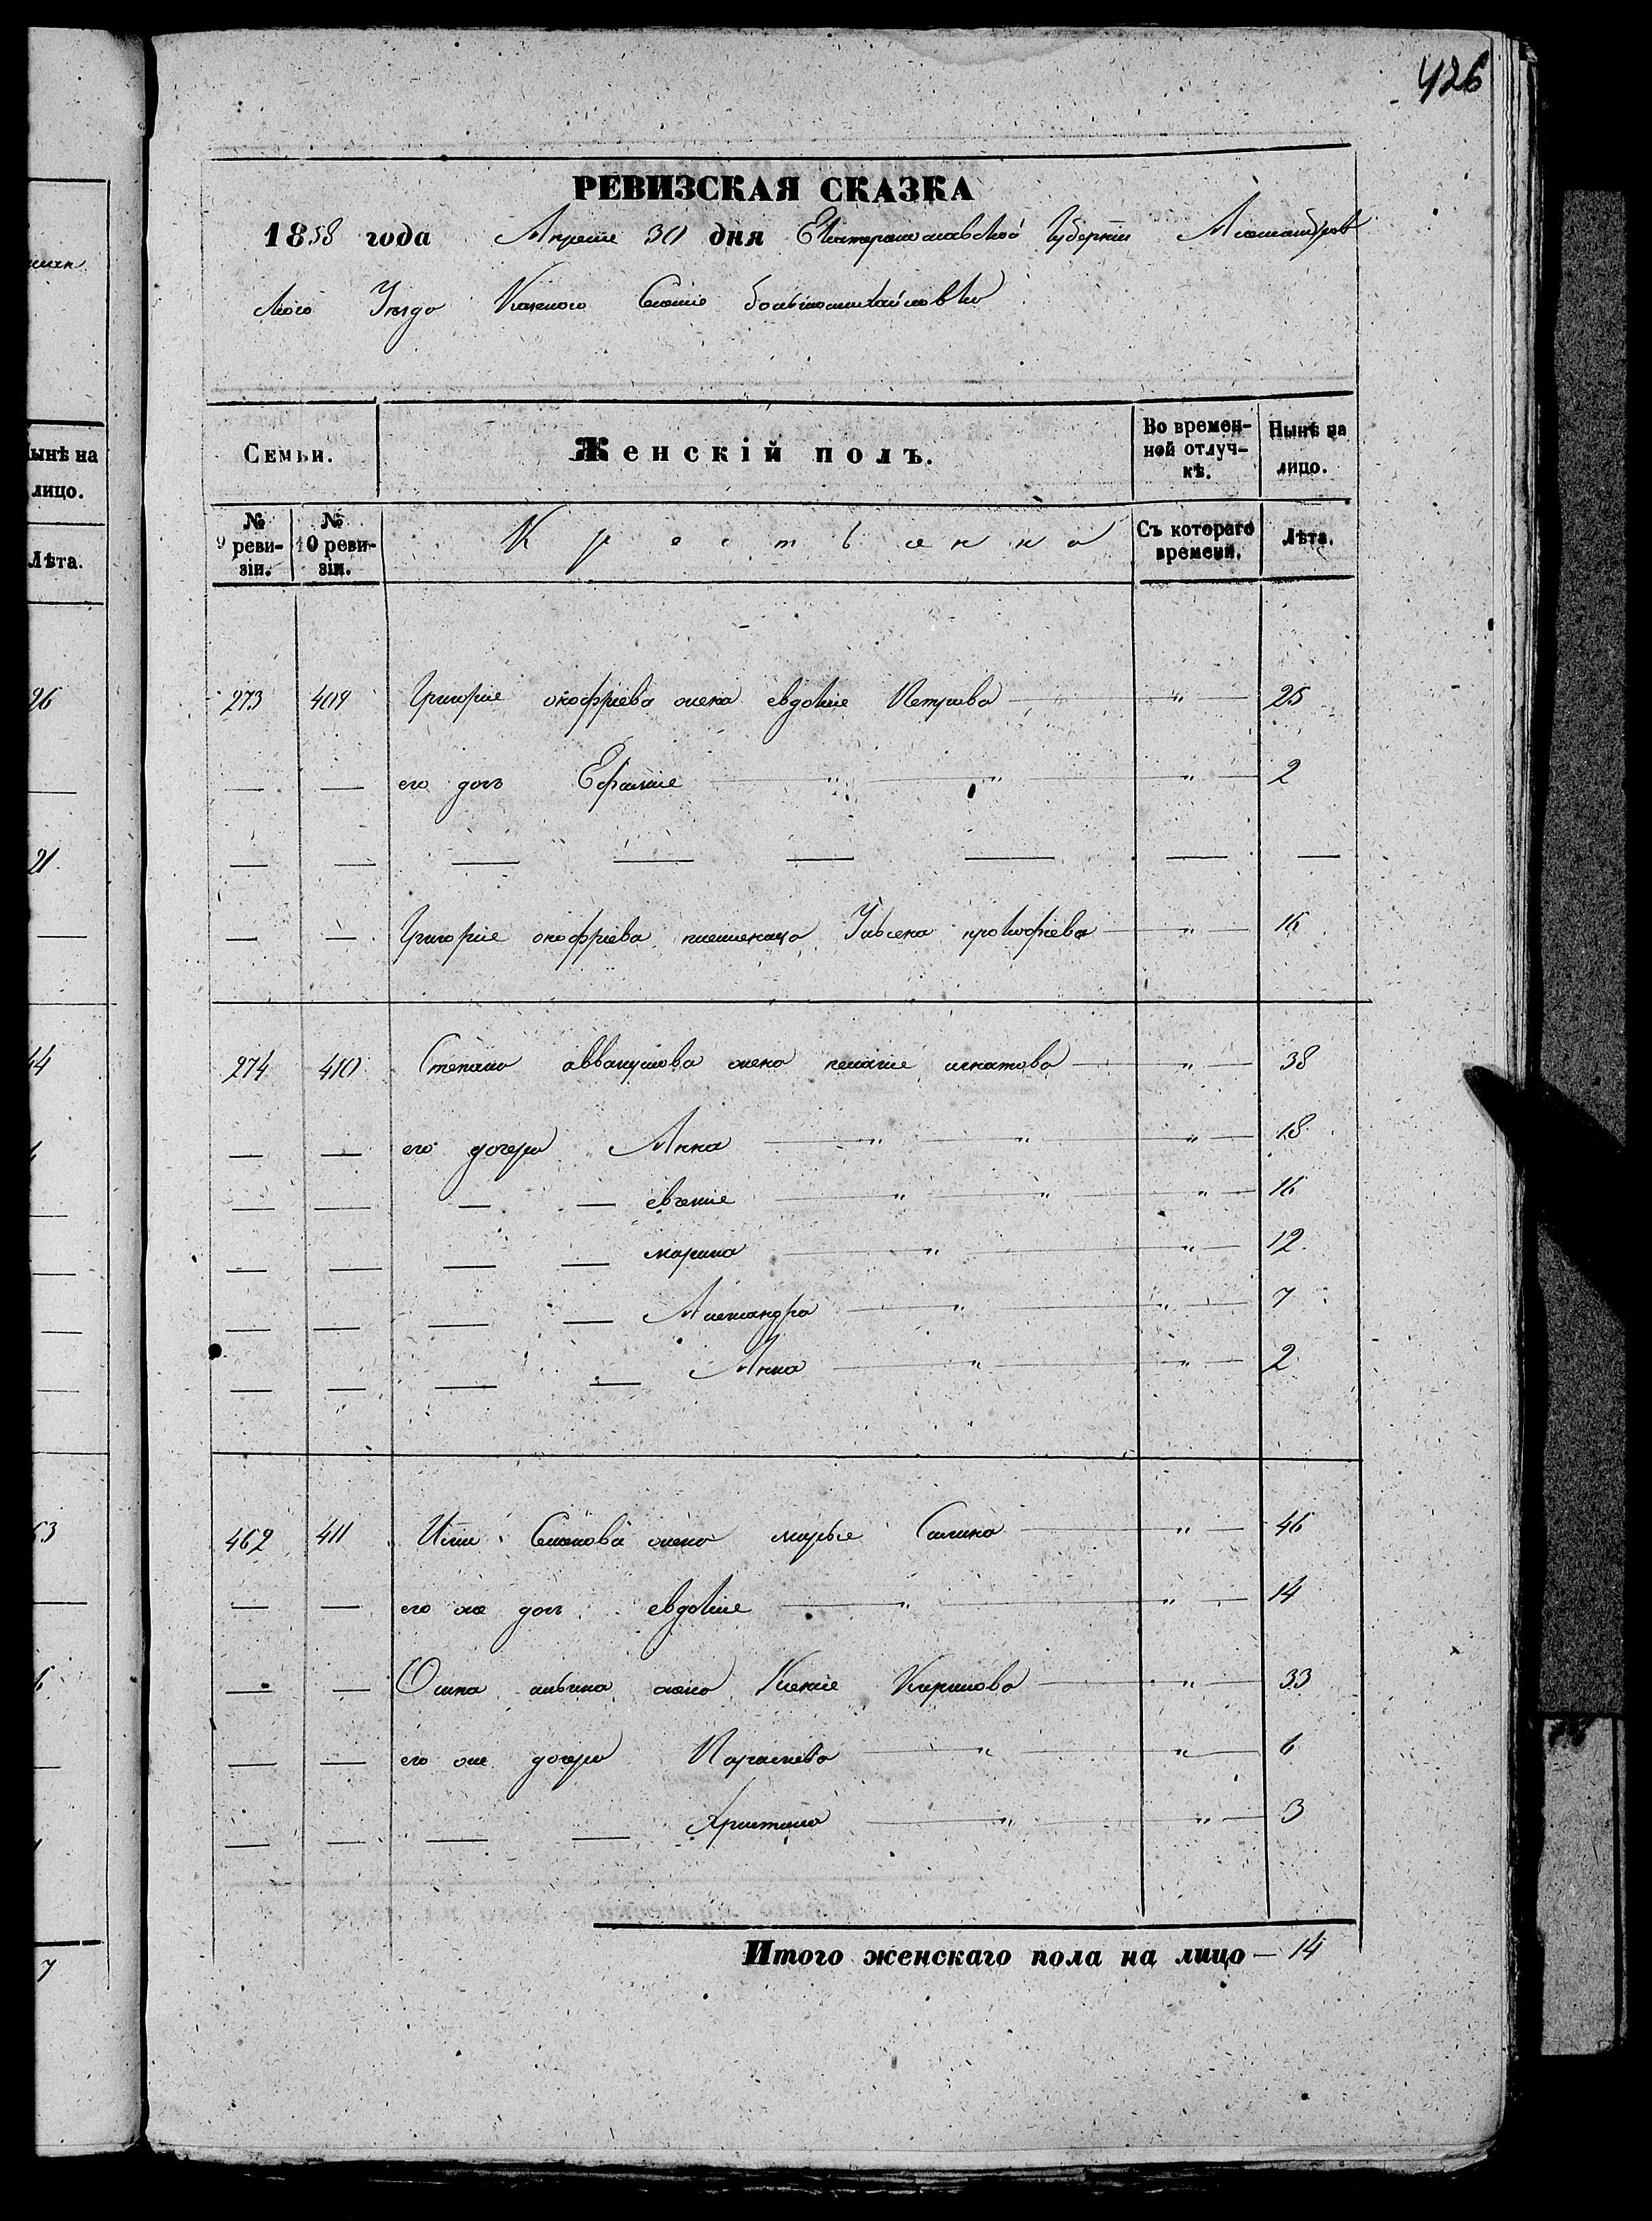 426
РЕВИЗСКАЯ СКАЗКА
1858 года Апреле 30 дня Екатеринославской Губернии Александров
ского Уезда Казенного Селение большомихайловки
Семьи. Женскій полъ. Во времен-ной отлуч-кѣ. Нынѣ на лицо.
№ 9 реви-зіи. № 10 реви-зіи. Крестьянка Съ котораго времени. Лѣта.
273 409 Григорие онофриева жена евдокие Петрова " 25
— — его доч Ефимие " " " 2
— — — — — — — —
— — Григорие онофриева племеница прокофиева " 16
274 410 Степана аввакумова жена пелагие игнатова " 38
— — его дочери Анна " " " 18
— — — — евгение " " " 16
— — — — марина " " 12
— — — — Александра " " 7
— — — — Анна " " 2
462 411 Илии Семенова жена марье " 46
— — его же доч евдокие " " 14
— — илина жена Ксение Кирилова " 33
— — его же дочери Параскева " " 6
— — — — Христина " " 3
Итого женскаго пола на лицо — 14
ынѣ на
лицо.
Лѣта.
26
21
44
63
7